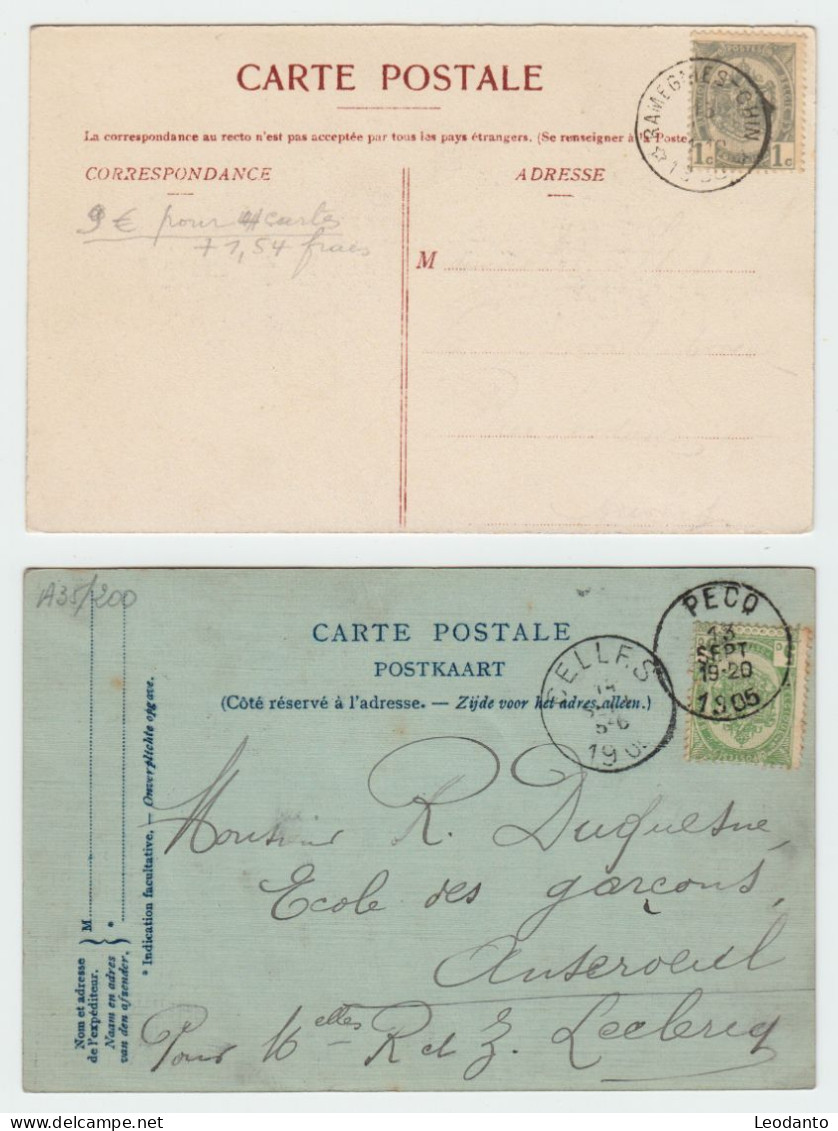 CARTE POSTALE
La correspondance au recto n'est pas acceptée par tous les pays étrangers. (Se renseigner à la Poste
CORRESPONDANCE
ADRESSE
9 € pour 4 cartes
+ 1,54 frais
M
RAMEGNIES-CHIN
POSTES
1c 1c
A35/200
CARTE POSTALE
POSTKAART
(Côté réservé à l'adresse. — Zijde voor het adres alleen.)
PECQ
13
SEPT
19-20
1905
CELLES
14
5-6
Monsieur R. Duquesne,
Ecole des garçons,
Anseroeul
Pour Melles R et Z. Leclercq
Nom et adresse
de l'expéditeur.
Naam en adres
van den afzender.
M
* Indication facultative. — Onverplichte opgave.
Leodanto